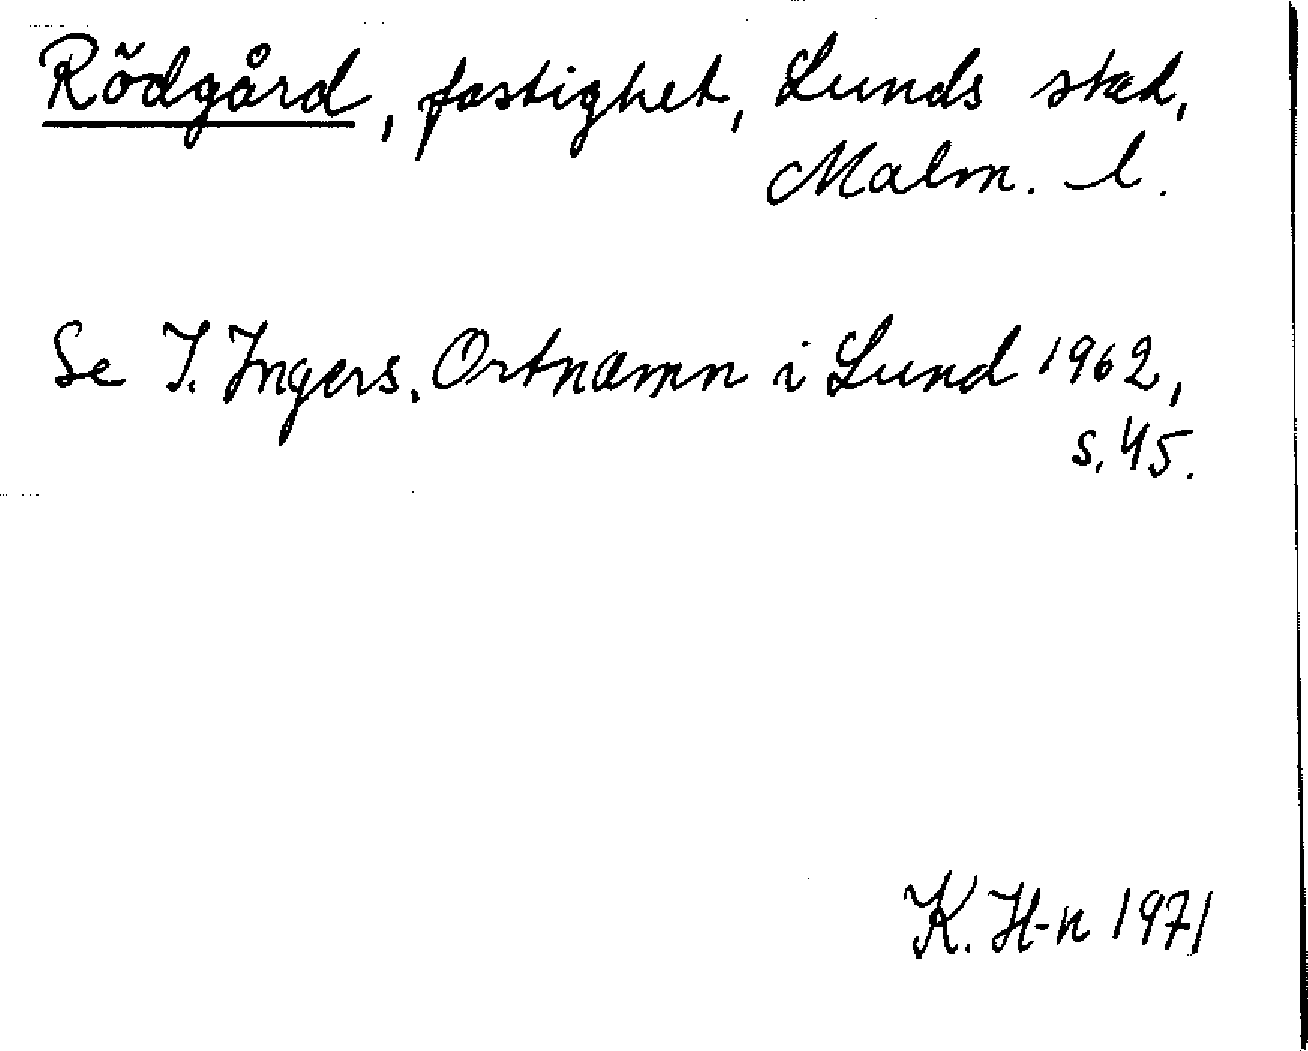 Rödgård, fastighet, Lunds stad,
Malm. l.
Se I. Ingers, Ortnamn i Lund 1962,
s. 45.
K. H-n 1971